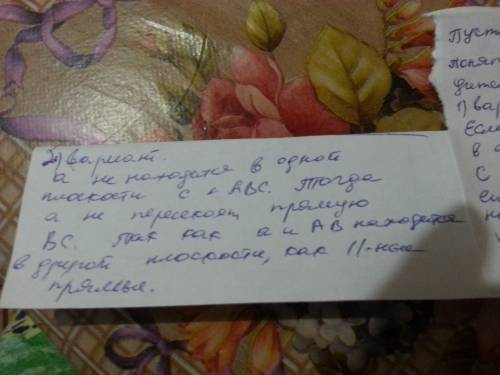 2) Вариант.
а не находится в одной
плоскости с △ АВС. Тогда
а не пересекает прямую
ВС. Так как а и АВ находятся
в другой плоскости, как //-ные
прямые.
Пусть
1) вар
Если
в о
С